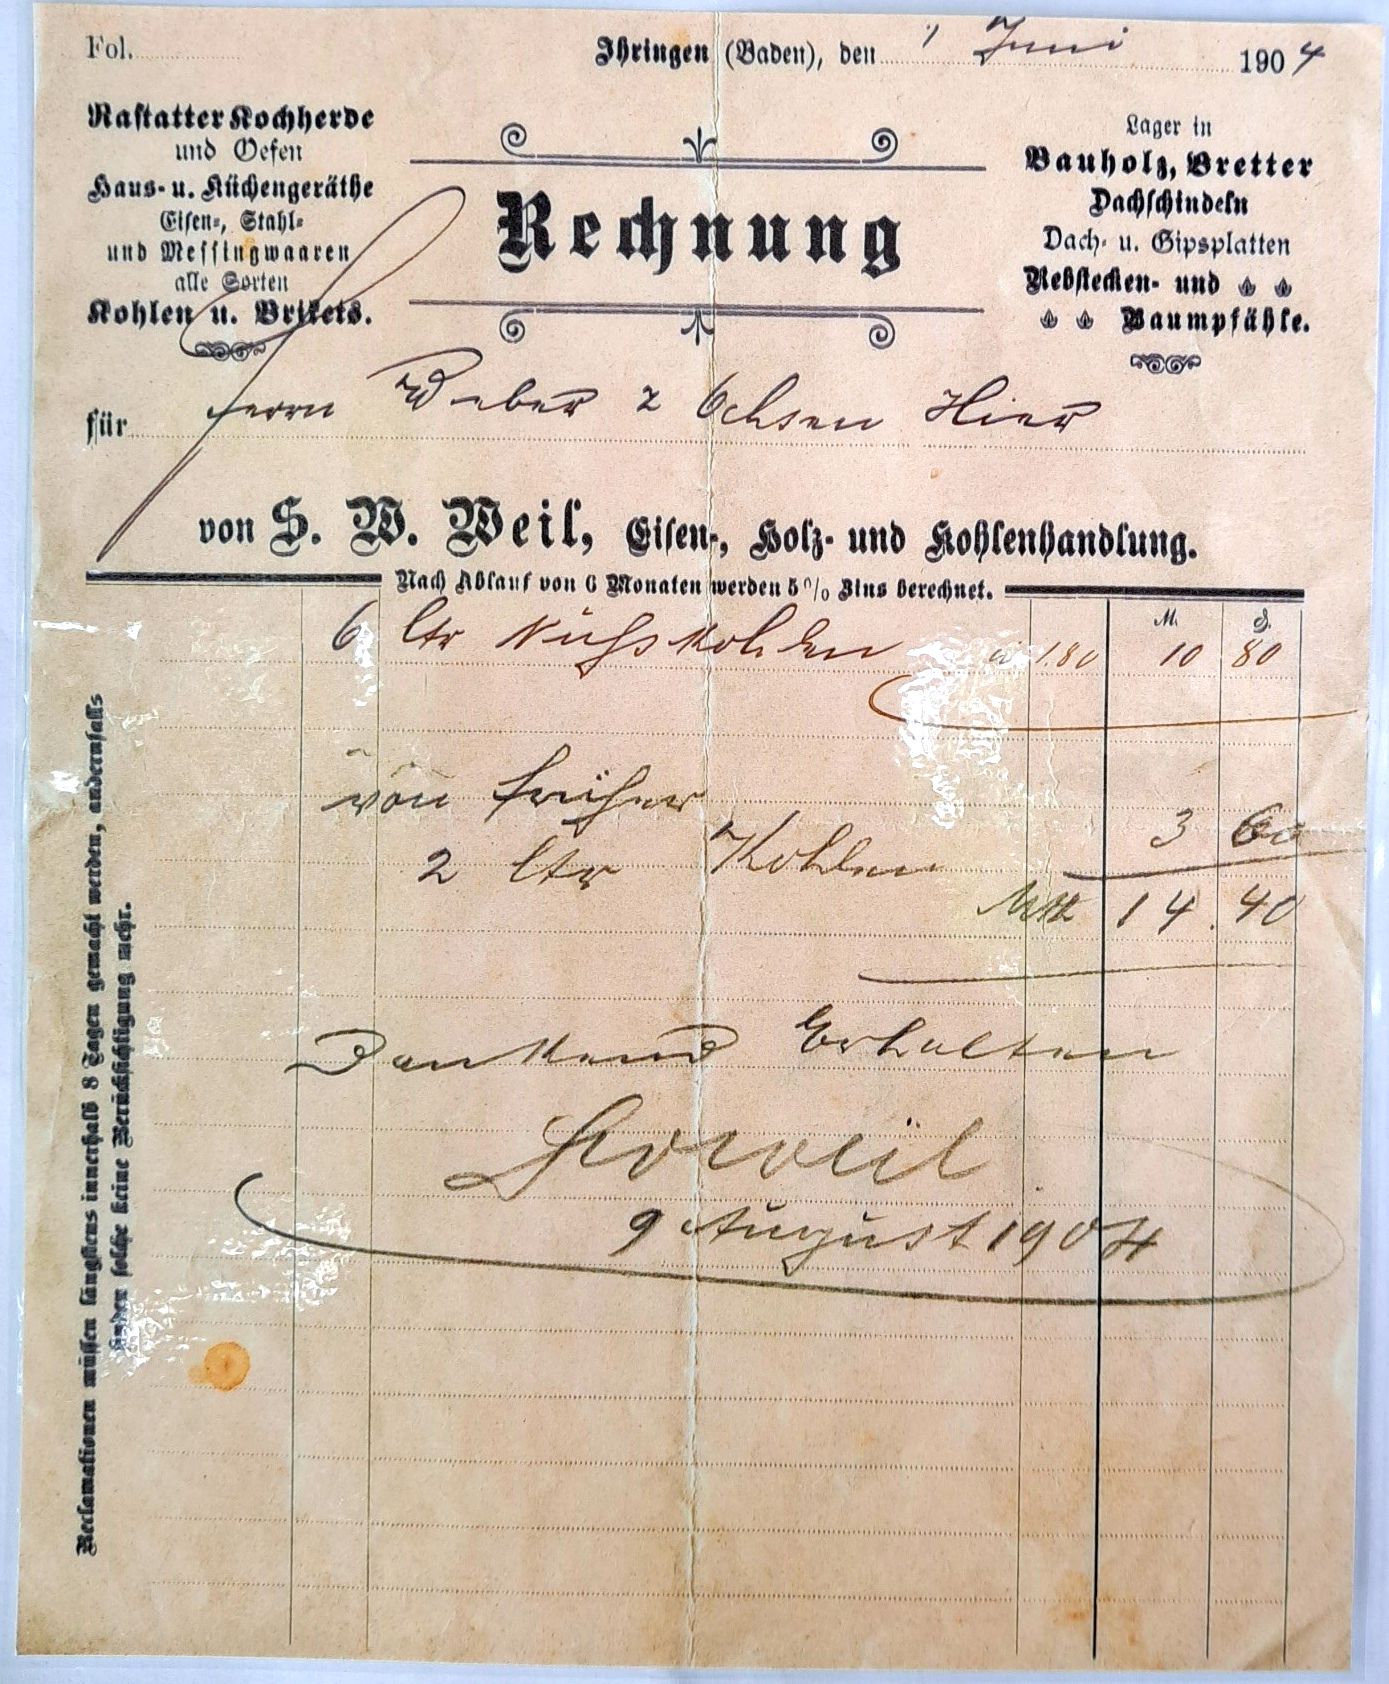 Fol.
Ihringen (Baden), den 1 Juni 1904
Rastatter Kochherde
und Oefen
Haus- u. Küchengeräthe
Eisen-, Stahl-
und Messingwaaren
alle Sorten
Kohlen u. Brikets.
Rechnung
Lager in
Bauholz, Bretter
Dachschindeln
Dach- u. Gipsplatten
Rebstecken- und
Baumpfähle.
für Herrn Weber z Ochsen Hier
von S. W. Weil, Eisen-, Holz- und Kohlenhandlung.
Nach Ablauf von 6 Monaten werden 5% Zins berechnet.
M. ₰.
6 Ctr Nußkohlen à 1.80 10 80
von früher
2 Ctr Kohlen 3 60
Mk 14.40
Dankend Erhalten
SWWeil
9 August 1904
Reclamationen müssen längstens innerhalb 8 Tagen gemacht werden, andernfalls
finden solche keine Berücksichtigung mehr.